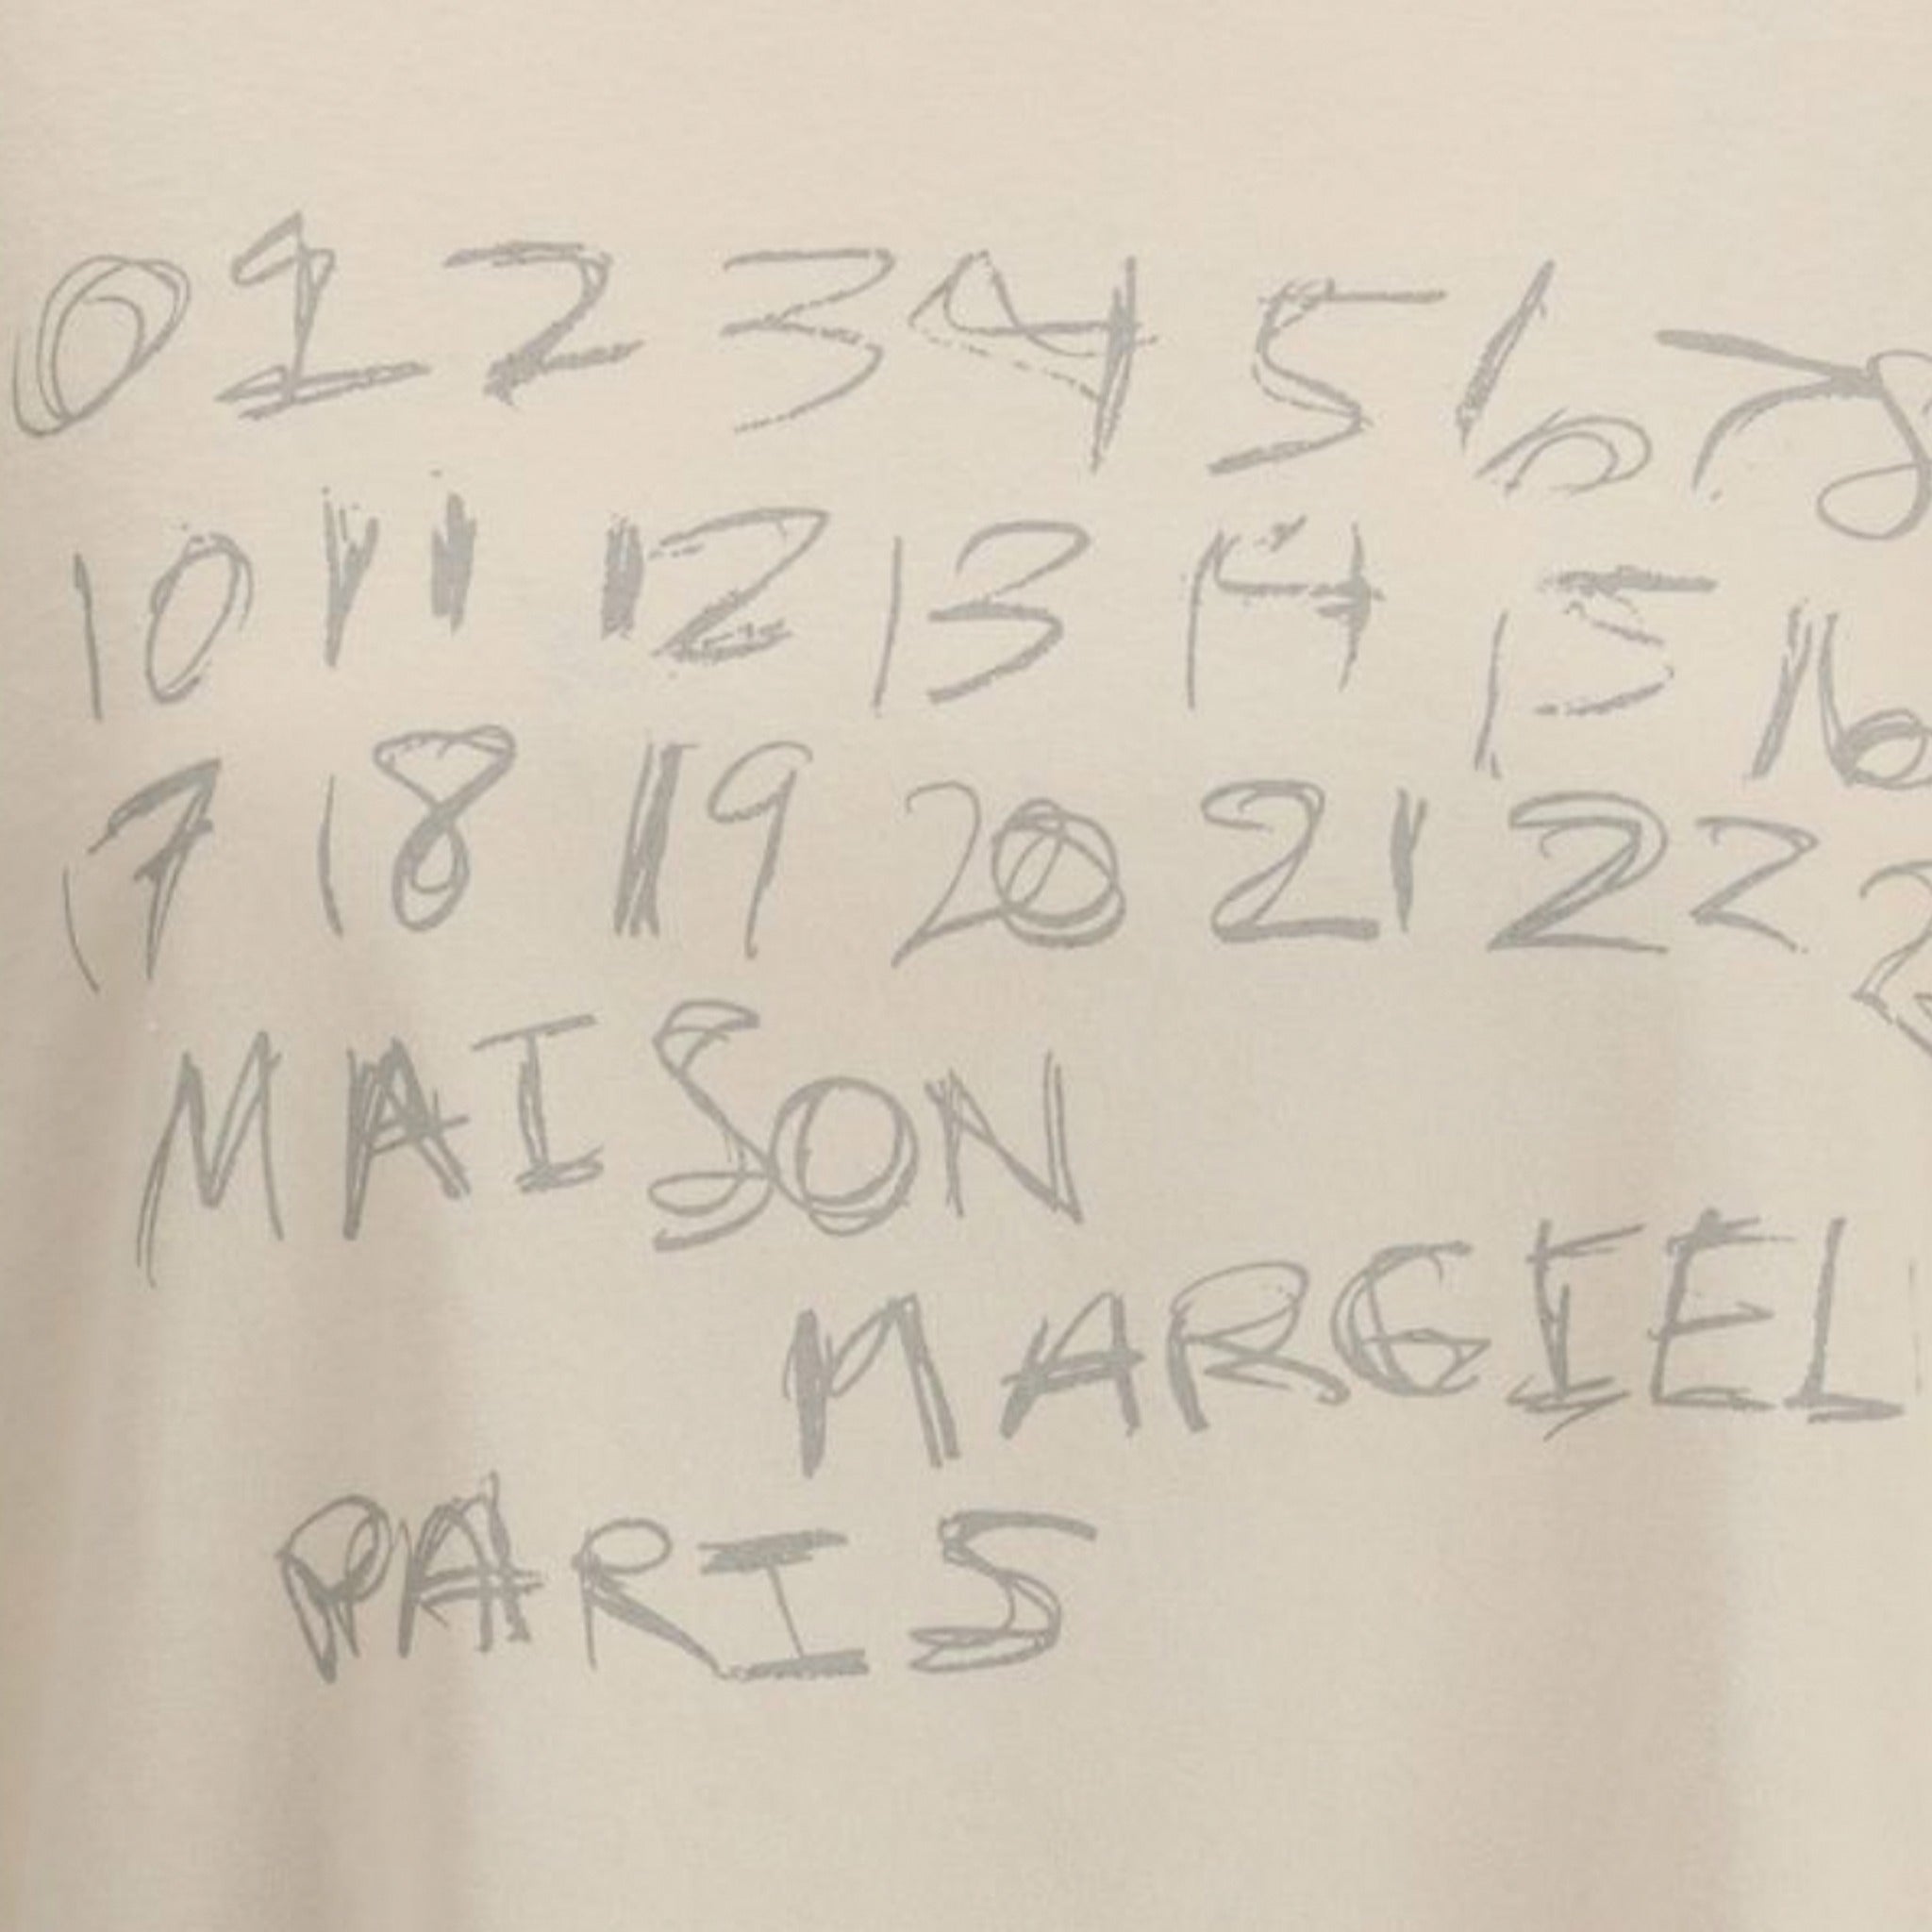 0 1 2 3 4 5 6 7 8
10 11 12 13 14 15 16
17 18 19 20 21 22 2
MAISON
MARGIEL
PARIS